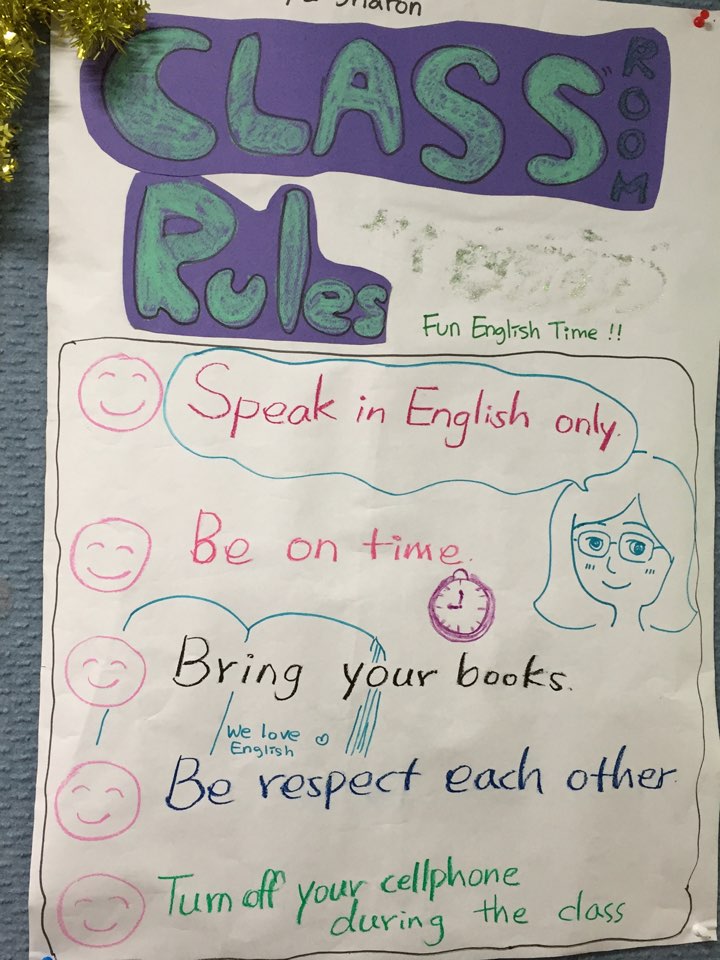 Sharon
CLASS ROOM
Rules
Fun English Time !!
Speak in English only.
Be on time.
Bring your books.
We love
English
Be respect each other
Turn off your cellphone
during the class